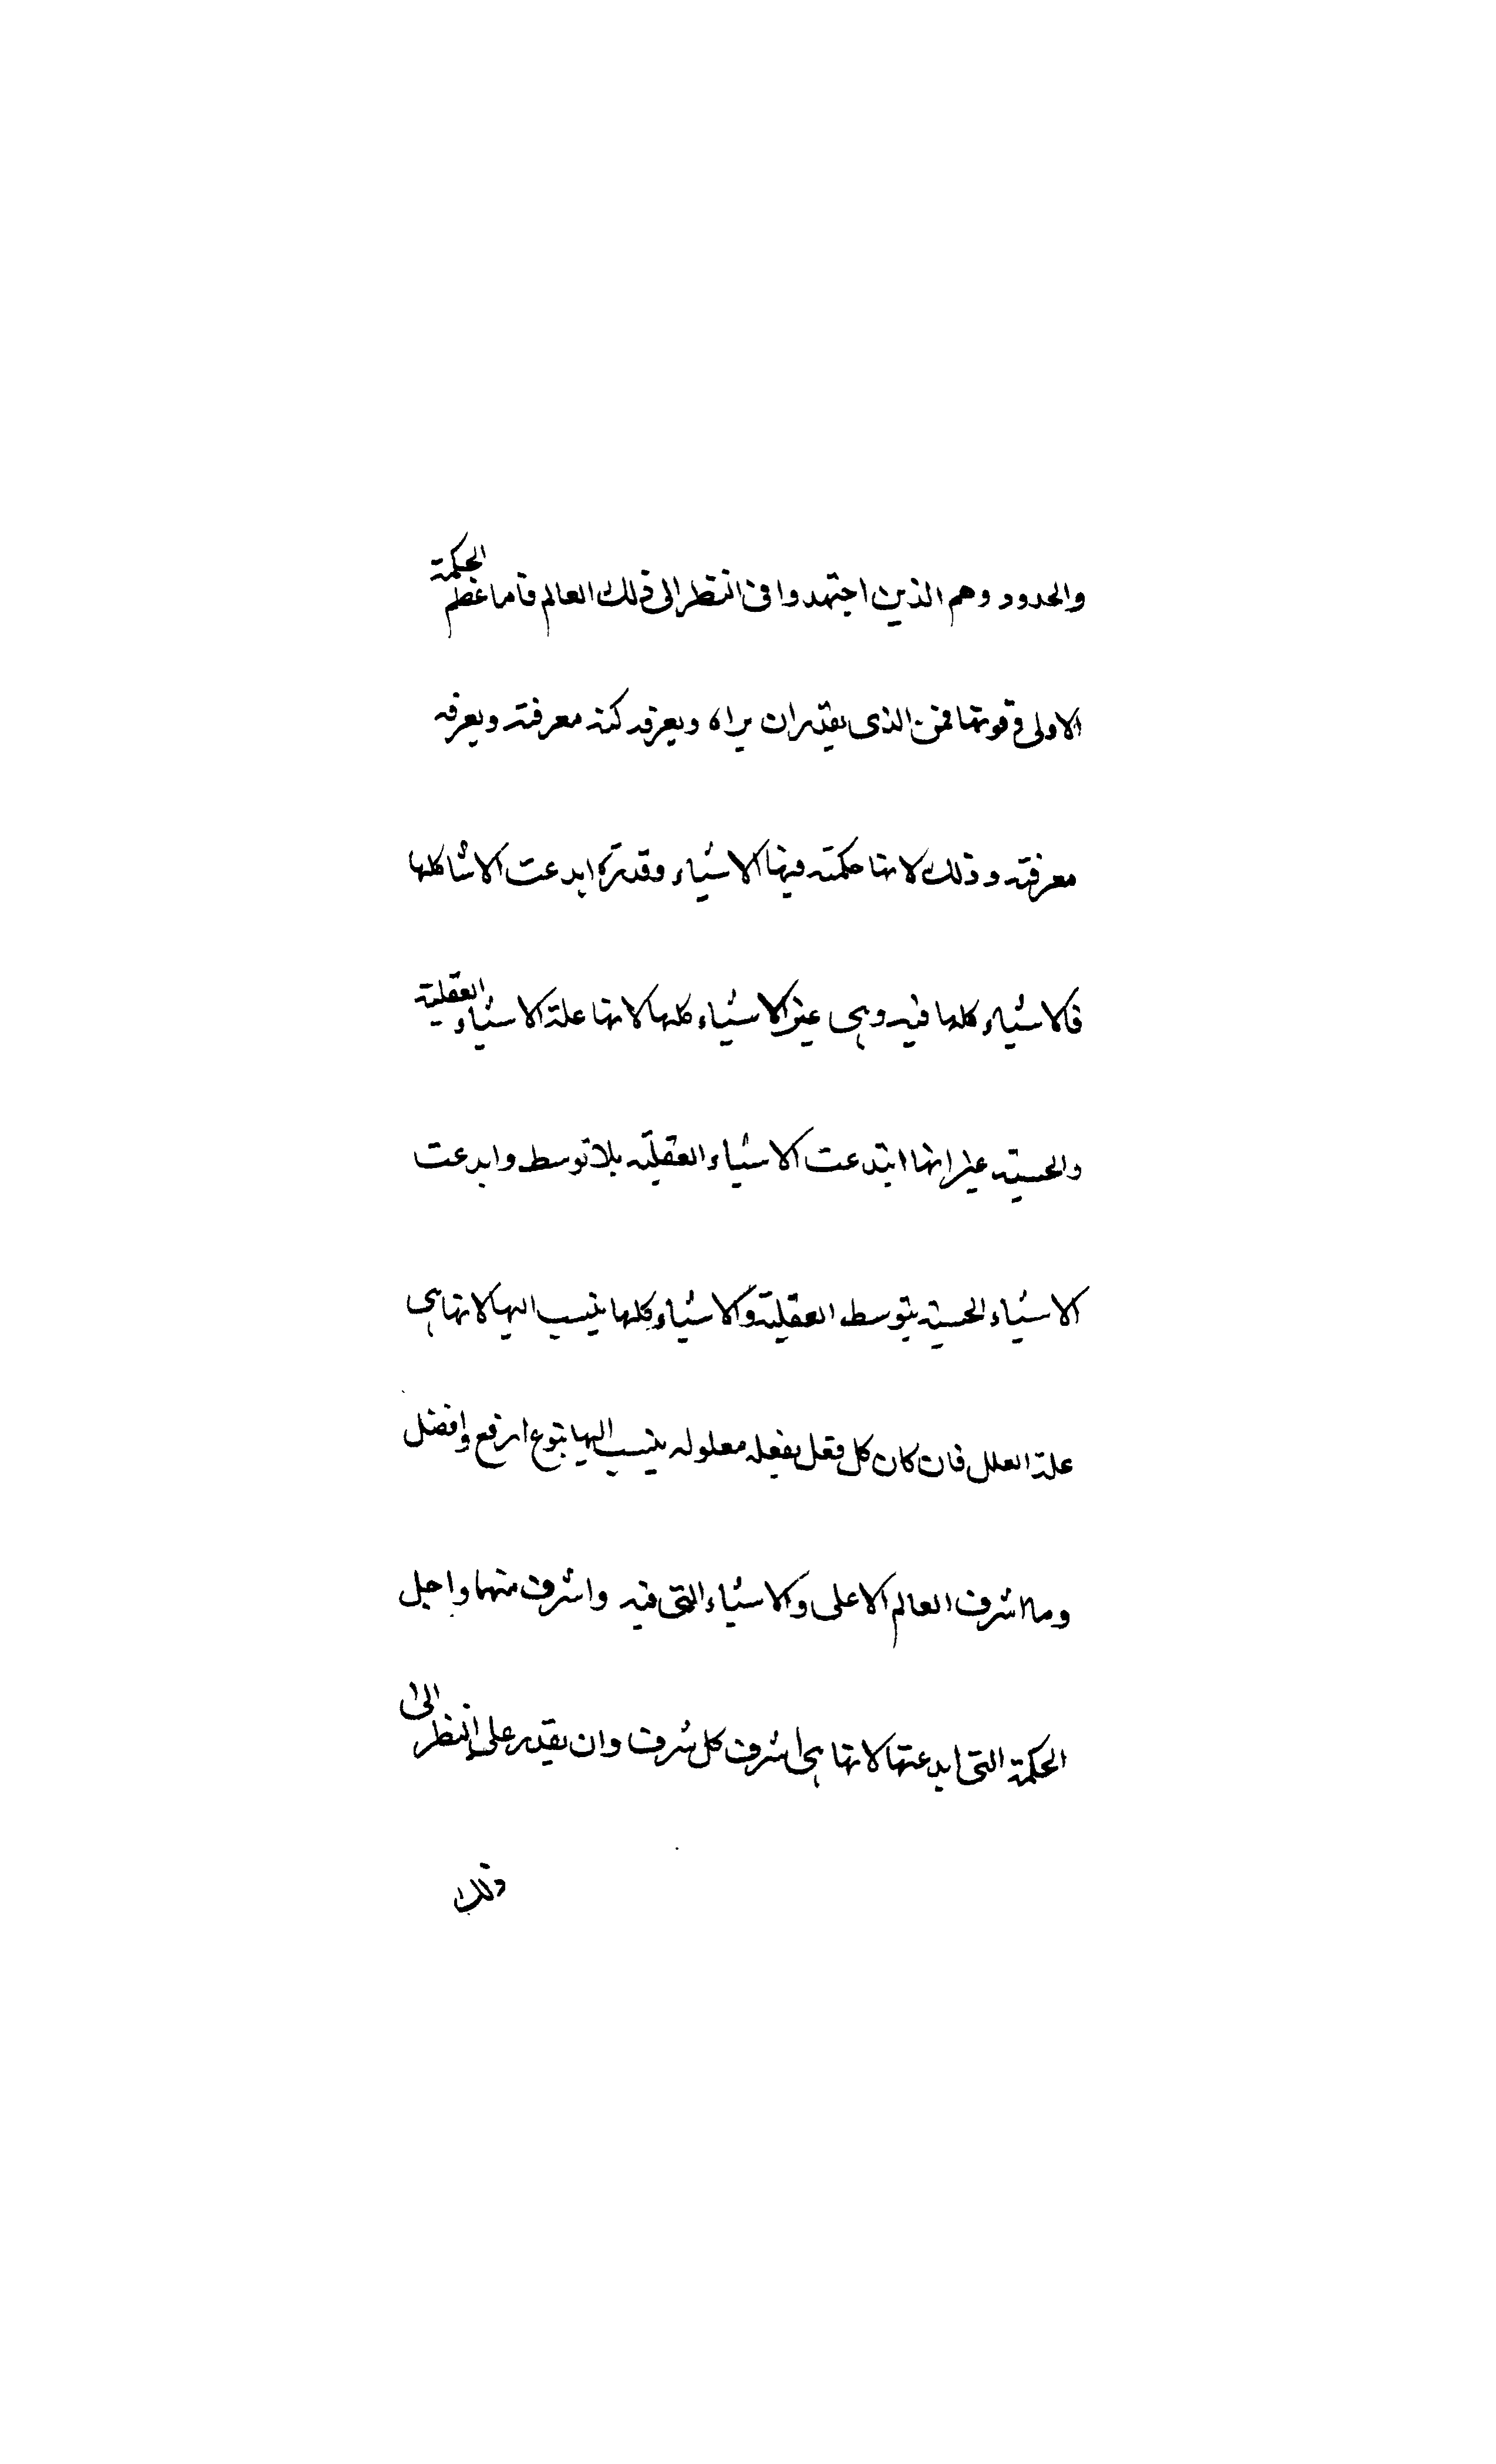 والحدود وهم الذين اجتهدوا فى النظر الى ذلك العالم فاما عظم الحكمة
الاولى وقوتها فمن الذى يقدر ان يراه ويعرفه كنه معرفته ويعرفه
معرفته وذلك لانها حكمته فيها الاشياء وقدرة ابدعت الاشا كلها
فالاشياء كلها فيه وهى غير الاشياء كلها لانها علة الاشياء العقلية
والحسيته غير انها ابتدعت الاشياء العقليه بلا توسط وابدعت
الاشياء الحسيه بتوسط العقلية والاشياء كلها ينسب اليها لانها هى
علة العلل فان كان كل فعل يفعله معلوله ينسب اليها بنوع ارفع وافضل
وما اشرف العالم الاعلى والاشياء التى فيه واشرف منهما واجل
الحكمة التى ابدعتها لانها هى اشرف كل شرف وان يقدر على النظر الى
ذلك